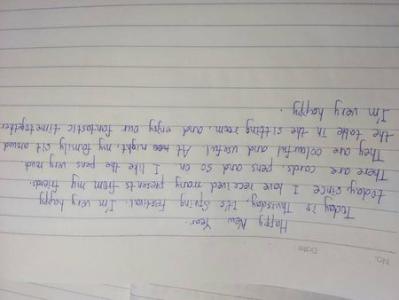 No.
Date
Happy New Year.
Today is Thursday, It's Spring Festival. I'm very happy
today, since I have received many presents from my friends.
There are cards, pens and so on. I like the pens very much
They are colourful and useful. At night, my family sit around
the table in the sitting room and enjoy our fantastic time together
I'm very happy.